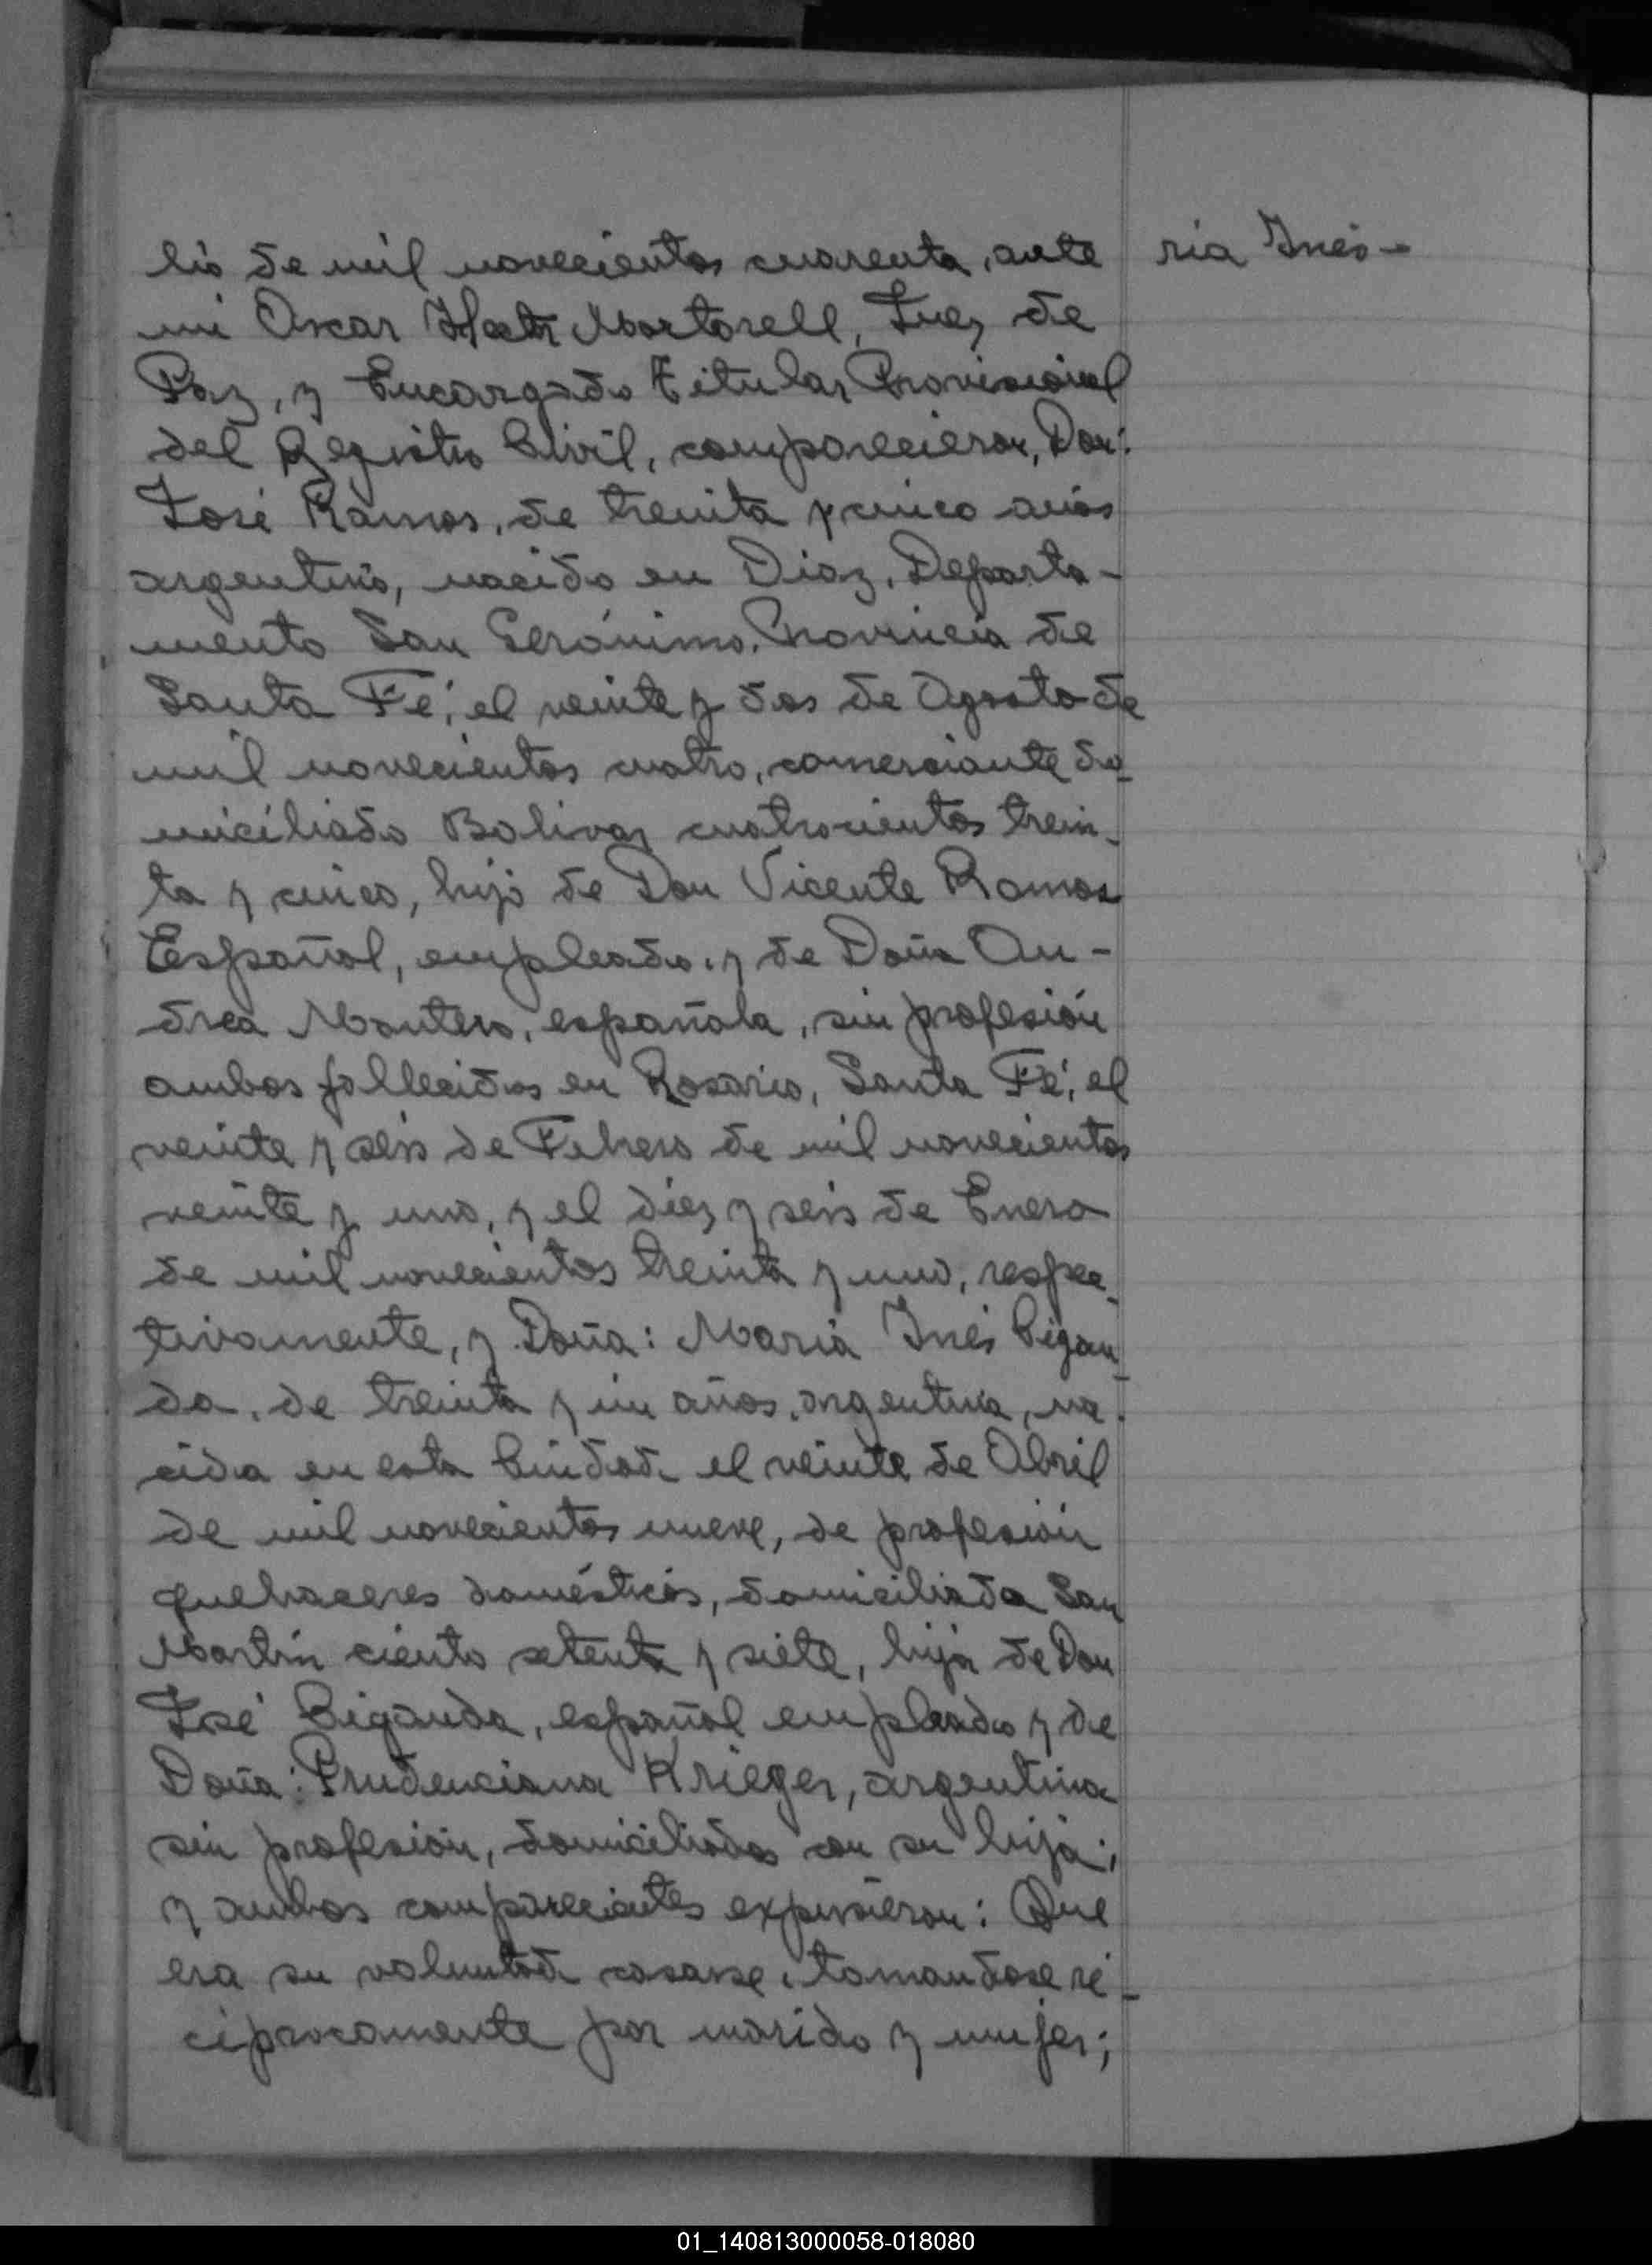 lio de mil novecientos cuarenta, ante
ria Inés-
mi Oscar Hector Martorell, Juez de
Paz, y Encargado Titular Provisional
del Registro Civil, comparecieron, Don:
José Ramos, de treinta y cinco años
argentino, nacido en Diaz, Departa-
mento San Gerónimo, Provincia de
Santa Fé, el veinte y dos de Agosto de
mil novecientos cuatro, comerciante do-
miciliado Bolivar cuatrocientos trein-
ta y cinco, hijo de Don Vicente Ramos
Español, empleado, y de Doña An-
drea Montero, española, sin profesión
ambos fallecidos en Rosario, Santa Fé, el
veinte y seis de Febrero de mil novecientos
veinte y uno, y el diez y seis de Enero
de mil novecientos treinta y uno, respec-
tivamente, y Doña: María Inés Cigan-
da, de treinta y un años, argentina, na-
cida en esta Ciudad, el veinte de Abril
de mil novecientos nueve, de profesión
quehaceres domésticos, domiciliada San
Martín ciento setenta y siete, hija de Don
José Ciganda, español empleado y de
Doña: Prudenciana Krieger, argentina
sin profesión, domiciliados con su hija;
y ambos comparecientes expusieron: Que
era su voluntad casarse, tomandose re-
ciprocamente por marido y mujer;
01_140813000058-018080